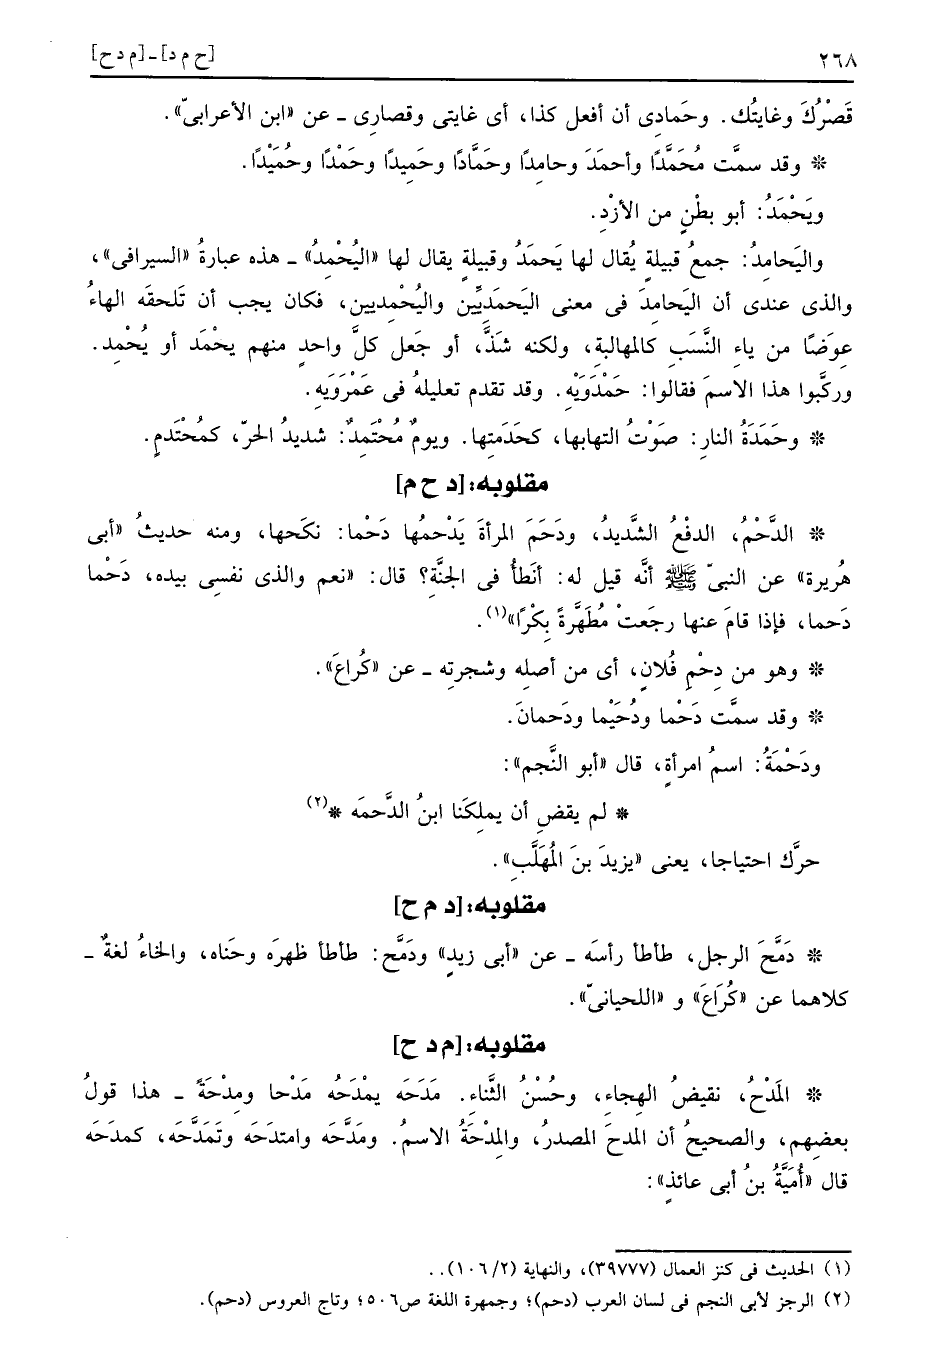 ٢٦٨ [ح م د] - [م د ح]
قَصْرُكَ وغايتُك. وحَمادى أن أفعل كذا، أى غايتى وقصارى ـ عن «ابن الأعرابىّ».
* وقد سمَّت مُحَمَّدًا وأحمَدَ وحامِدا وحَمَّادًا وحَمِيدًا وحَمْدًا وحُمَيْدًا.
ويَحْمَدُ: أبو بطْنٍ من الأزْدِ.
واليَحامِدُ: جمعُ قبيلةٍ يُقال لها يَحمَدُ وقبيلةٍ يقال لها «اليُحْمِدُ» ـ هذه عبارةُ «السيرافى»،
والذى عندى أن اليَحامدَ فى معنى اليَحمَدِيِّين واليُحْمِديين، فكان يجب أن تَلحقَه الهاءُ
عوضًا من ياءِ النَّسَبِ كالمهالبة، ولكنه شذَّ، أو جَعل كلَّ واحدٍ منهم يحْمَد أو يُحْمِد.
وركَّبوا هذا الاسمَ فقالوا: حَمْدَوَيْهِ. وقد تقدم تعليلهُ فى عَمْرَوَيهِ.
* وحَمَدَةُ النارِ: صَوْتُ التهابها، كحَدَمتِها. ويومٌ مُحْتَمِدٌ: شديدُ الحرّ، كمُحْتَدمٍ.
مقلوبه: [د ح م]
* الدَّحْمُ، الدفْعُ الشَّديدُ، ودَحَمَ المرأةَ يَدْحمُها دَحْما: نكَحها، ومنه حديثُ «أبى
هُريرة» عن النبىّ ﷺ أنَّه قيل له: أنَطأُ فى الجنَّة؟ قال: «نعم والذى نفسى بيده، دَحْما
دَحما، فإذا قامَ عنها رجَعتْ مُطَهَّرةً بِكْرًا»(١).
* وهو من دِحْمِ فُلان، أى من أصلِه وشجرتِه ـ عن «كُراعَ».
* وقد سمَّت دَحْما ودُحَيْما ودَحمانَ.
ودَحْمَةُ: اسمُ امرأةٍ، قال «أبو النَّجم»:
* لم يقضِ أن يملِكَنا ابنُ الدَّحمَه *(٢)
حرَّك احتياجا، يعنى «يزيدَ بنَ المُهَلَّبِ».
مقلوبه: [د م ح]
* دَمَّحَ الرجل، طأطأ رأسَه ـ عن «أبى زيدٍ» ودَمَّح: طأطأ ظهرَه وحَناه، والخاءُ لغةٌ ـ
كلاهما عن «كُرَاعَ» و «اللحيانىّ».
مقلوبه: [م د ح]
* المَدْحُ، نقيضُ الهجاء، وحُسْنُ الثَّناءِ. مَدَحَه يمْدَحُه مَدْحا ومِدْحَةً ـ هذا قولُ
بعضهم، والصحيحُ أن المدحَ المصدرُ، والمِدْحَةُ الاسمُ. ومَدَّحَه وامتدَحَه وتَمَدَّحَه، كمدَحَه
قال «أُمَيَّةُ بنُ أبى عائذٍ»:
(١) الحديث فى كنز العمال (٣٩٧٧٧)، والنهاية (١٠٦/٢)..
(٢) الرجز لأبى النجم فى لسان العرب (دحم)؛ وجمهرة اللغة ص٥٠٦؛ وتاج العروس (دحم).